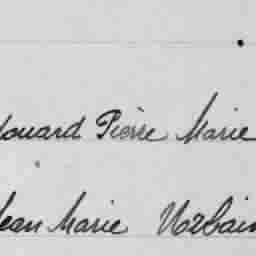 douard Pierre Marie
Jean Marie Urbain